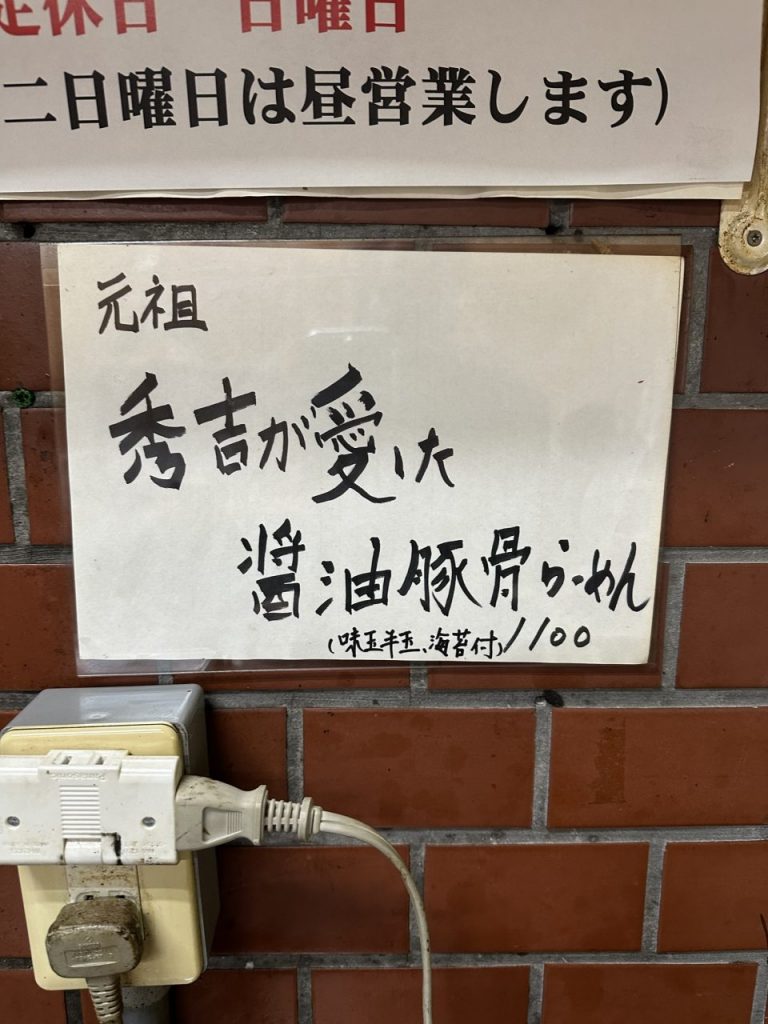 定休日 日曜日
二日曜日は昼営業します)
元祖
秀吉が愛した
醤油豚骨らーめん
(味玉半玉、海苔付) 1100
Panasonic